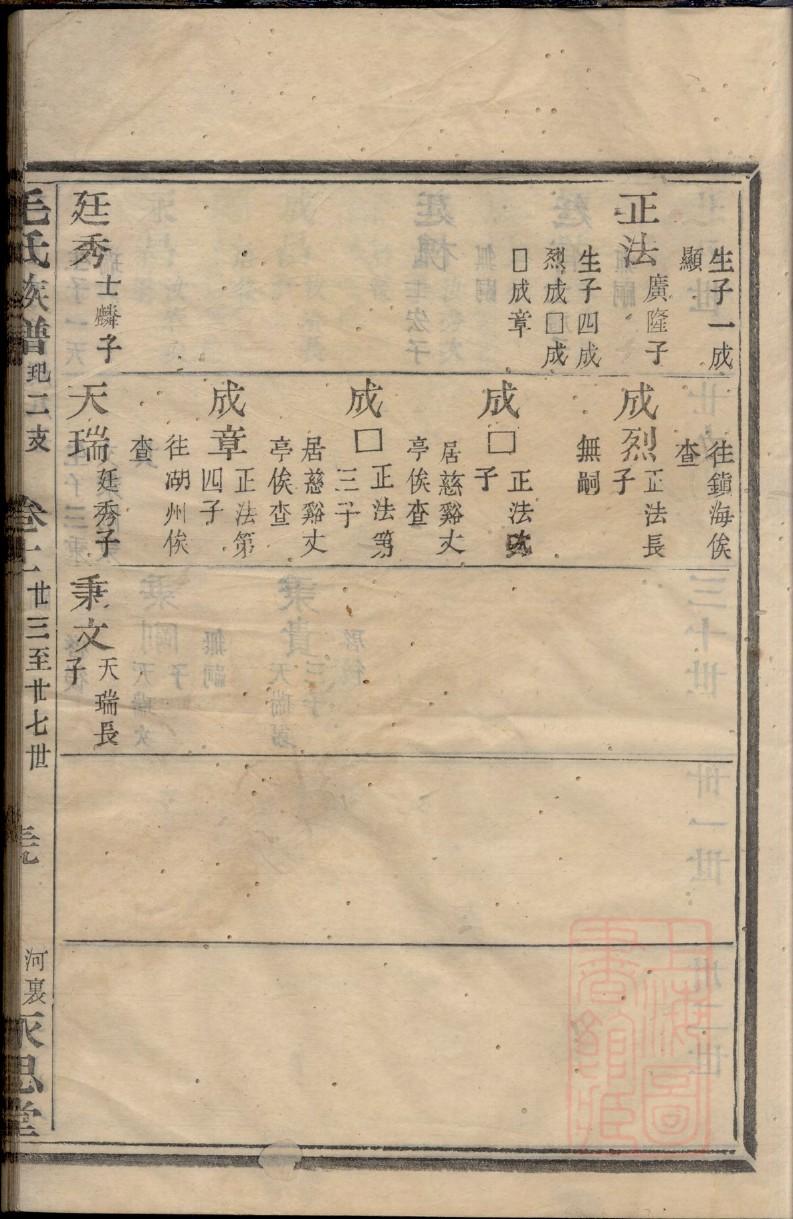 生子一成
顯
正法
廣隆子
生子四成
烈成□成
□成章
廷秀
士麟子
往鎮海俟
查
成烈
正法長
子
無嗣
成□
正法
子
居慈谿丈
亭俟查
成□
正法第
三子
居慈谿丈
亭俟查
成章
正法第
四子
往湖州俟
查
天瑞
廷秀子
秉文
天瑞長
子
毛氏族譜
二支
卷十
廿三至廿七世
河裏
永思堂
上海圖
書館藏